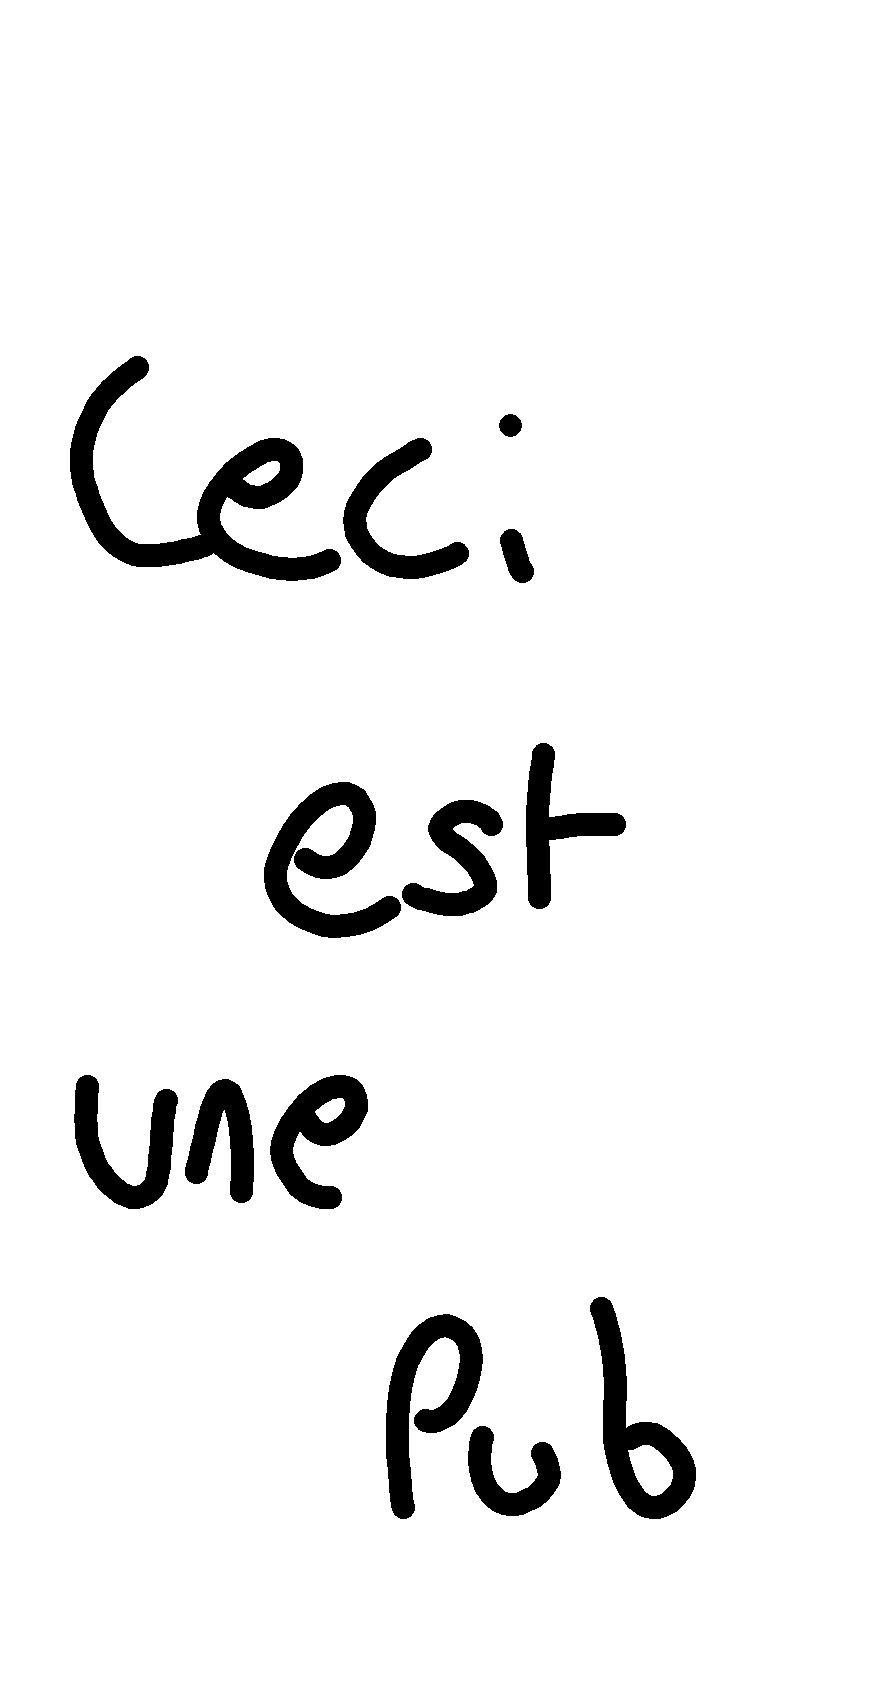 Ceci
est
une
Pub